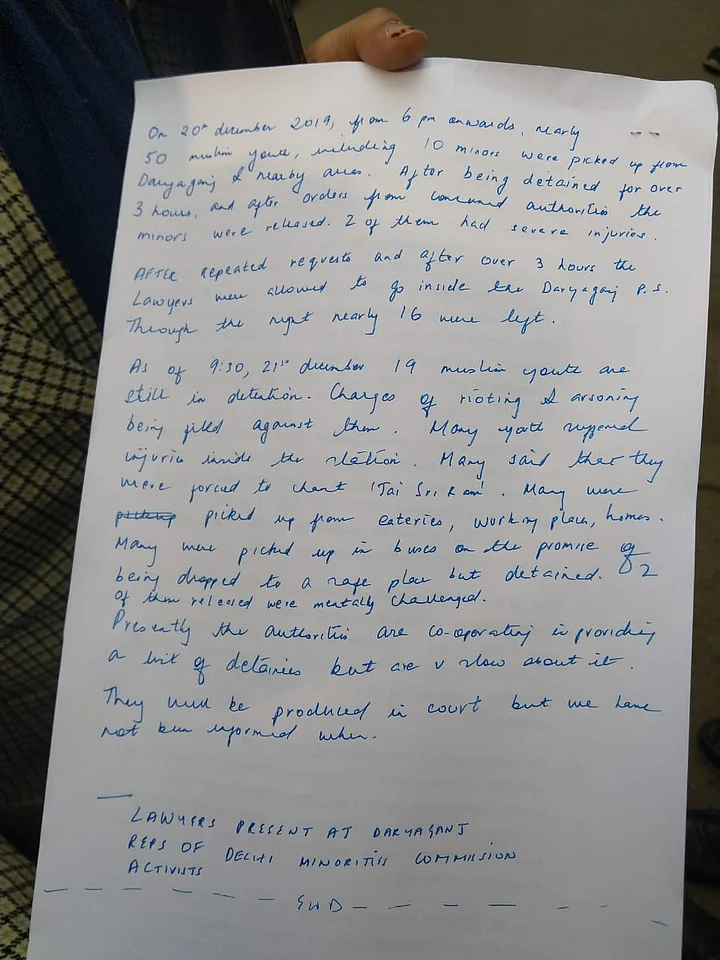 On 20th december 2019, from 6 pm onwards, nearly
50 muslim youth, including 10 minors were picked up from
Daryaganj & nearby areas. After being detained for over
3 hours, and after orders from concerned authorities the
minors were released. 2 of them had severe injuries.
AFTER repeated requests and after over 3 hours the
Lawyers were allowed to go inside the Daryaganj P.S.
Through the night nearly 16 were left.
As of 9:30, 21st december 19 muslim youth are
still in detention. Charges of rioting & arsoning
being filed against them. Many youth suffered
injuries inside the station. Many said that they
were forced to chant 'Jai Sri Ram'. Many were
pickup picked up from eateries, working places, homes.
Many were picked up in buses on the promise of
being dropped to a safe place but detained. 2
of them released were mentally challenged.
Presently the authorities are co-operating in providing
a list of detainies but are v slow about it.
They will be produced in court but we have
not been informed when.
LAWYERS PRESENT AT DARYAGANJ
REPS OF DELHI MINORITISS COMMISSION
ACTIVISTS
END